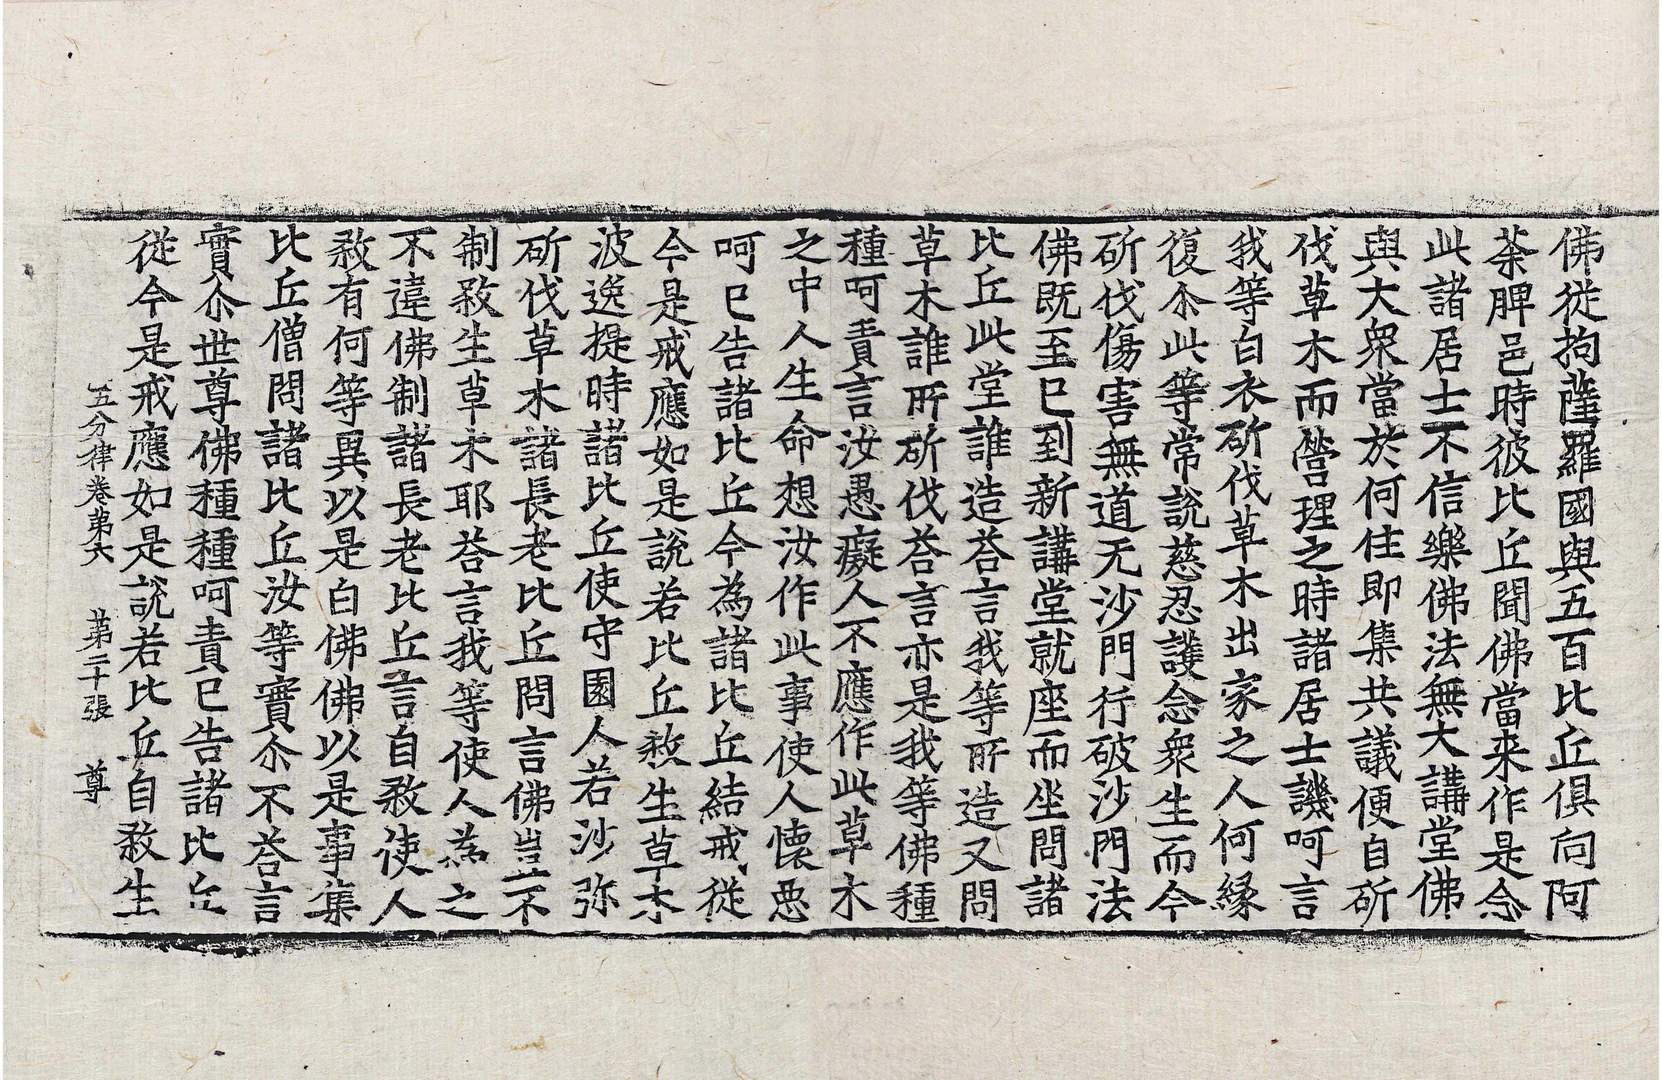 佛從拘薩羅國與五百比丘俱向阿
荼脾邑時彼比丘聞佛當来作是念
此諸居士不信樂佛法無大講堂佛
與大衆當於何住即集共議便自斫
伐草木而營理之時諸居士譏呵言
我等白衣斫伐草木出家之人何縁
復尒此等常説慈忍護念衆生而今
斫伐傷害無道无沙門行破沙門法
佛既至已到新講堂就座而坐問諸
比丘此堂誰造荅言我等所造又問
草木誰所斫伐荅言亦是我等佛種
種呵責言汝愚癡人不應作此草木
之中人生命想汝作此事使人懐惡
呵已告諸比丘今為諸比丘結戒從
今是戒應如是說若比丘煞生草木
波逸提時諸比丘使守園人若沙弥
斫伐草木諸長老比丘問言佛豈不
制煞生草木耶荅言我等使人為之
不違佛制諸長老比丘言自煞使人
煞有何等異以是白佛佛以是事集
比丘僧問諸比丘汝等實尒不荅言
實尒世尊佛種種呵責已告諸比丘
從今是戒應如是說若比丘自煞生
五分律卷第六　第二十張　尊